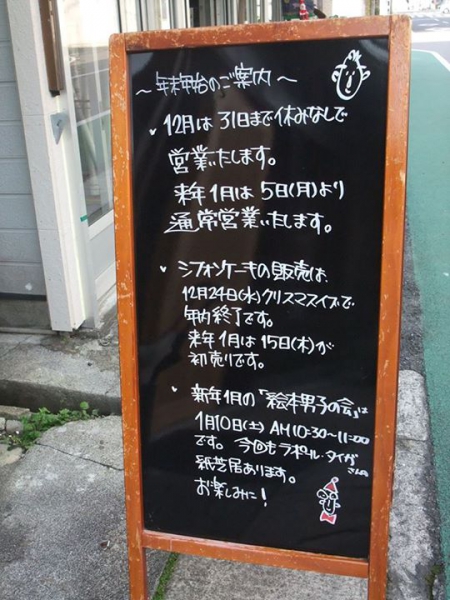 ～年末年始のご案内～
12月は31日まで休みなしで
営業いたします。
来年1月は5日(月)より
通常営業いたします。
シフォンケーキの販売は、
12月24日(水)クリスマスイブで
年内終了です。
来年1月は15日(木)が
初売りです。
新年1月の「絵本男子の会」は
1月10日(土)AM10:30~11:00
です。今回もラポール・タイガ
さんの
紙芝居あります。
お楽しみに！